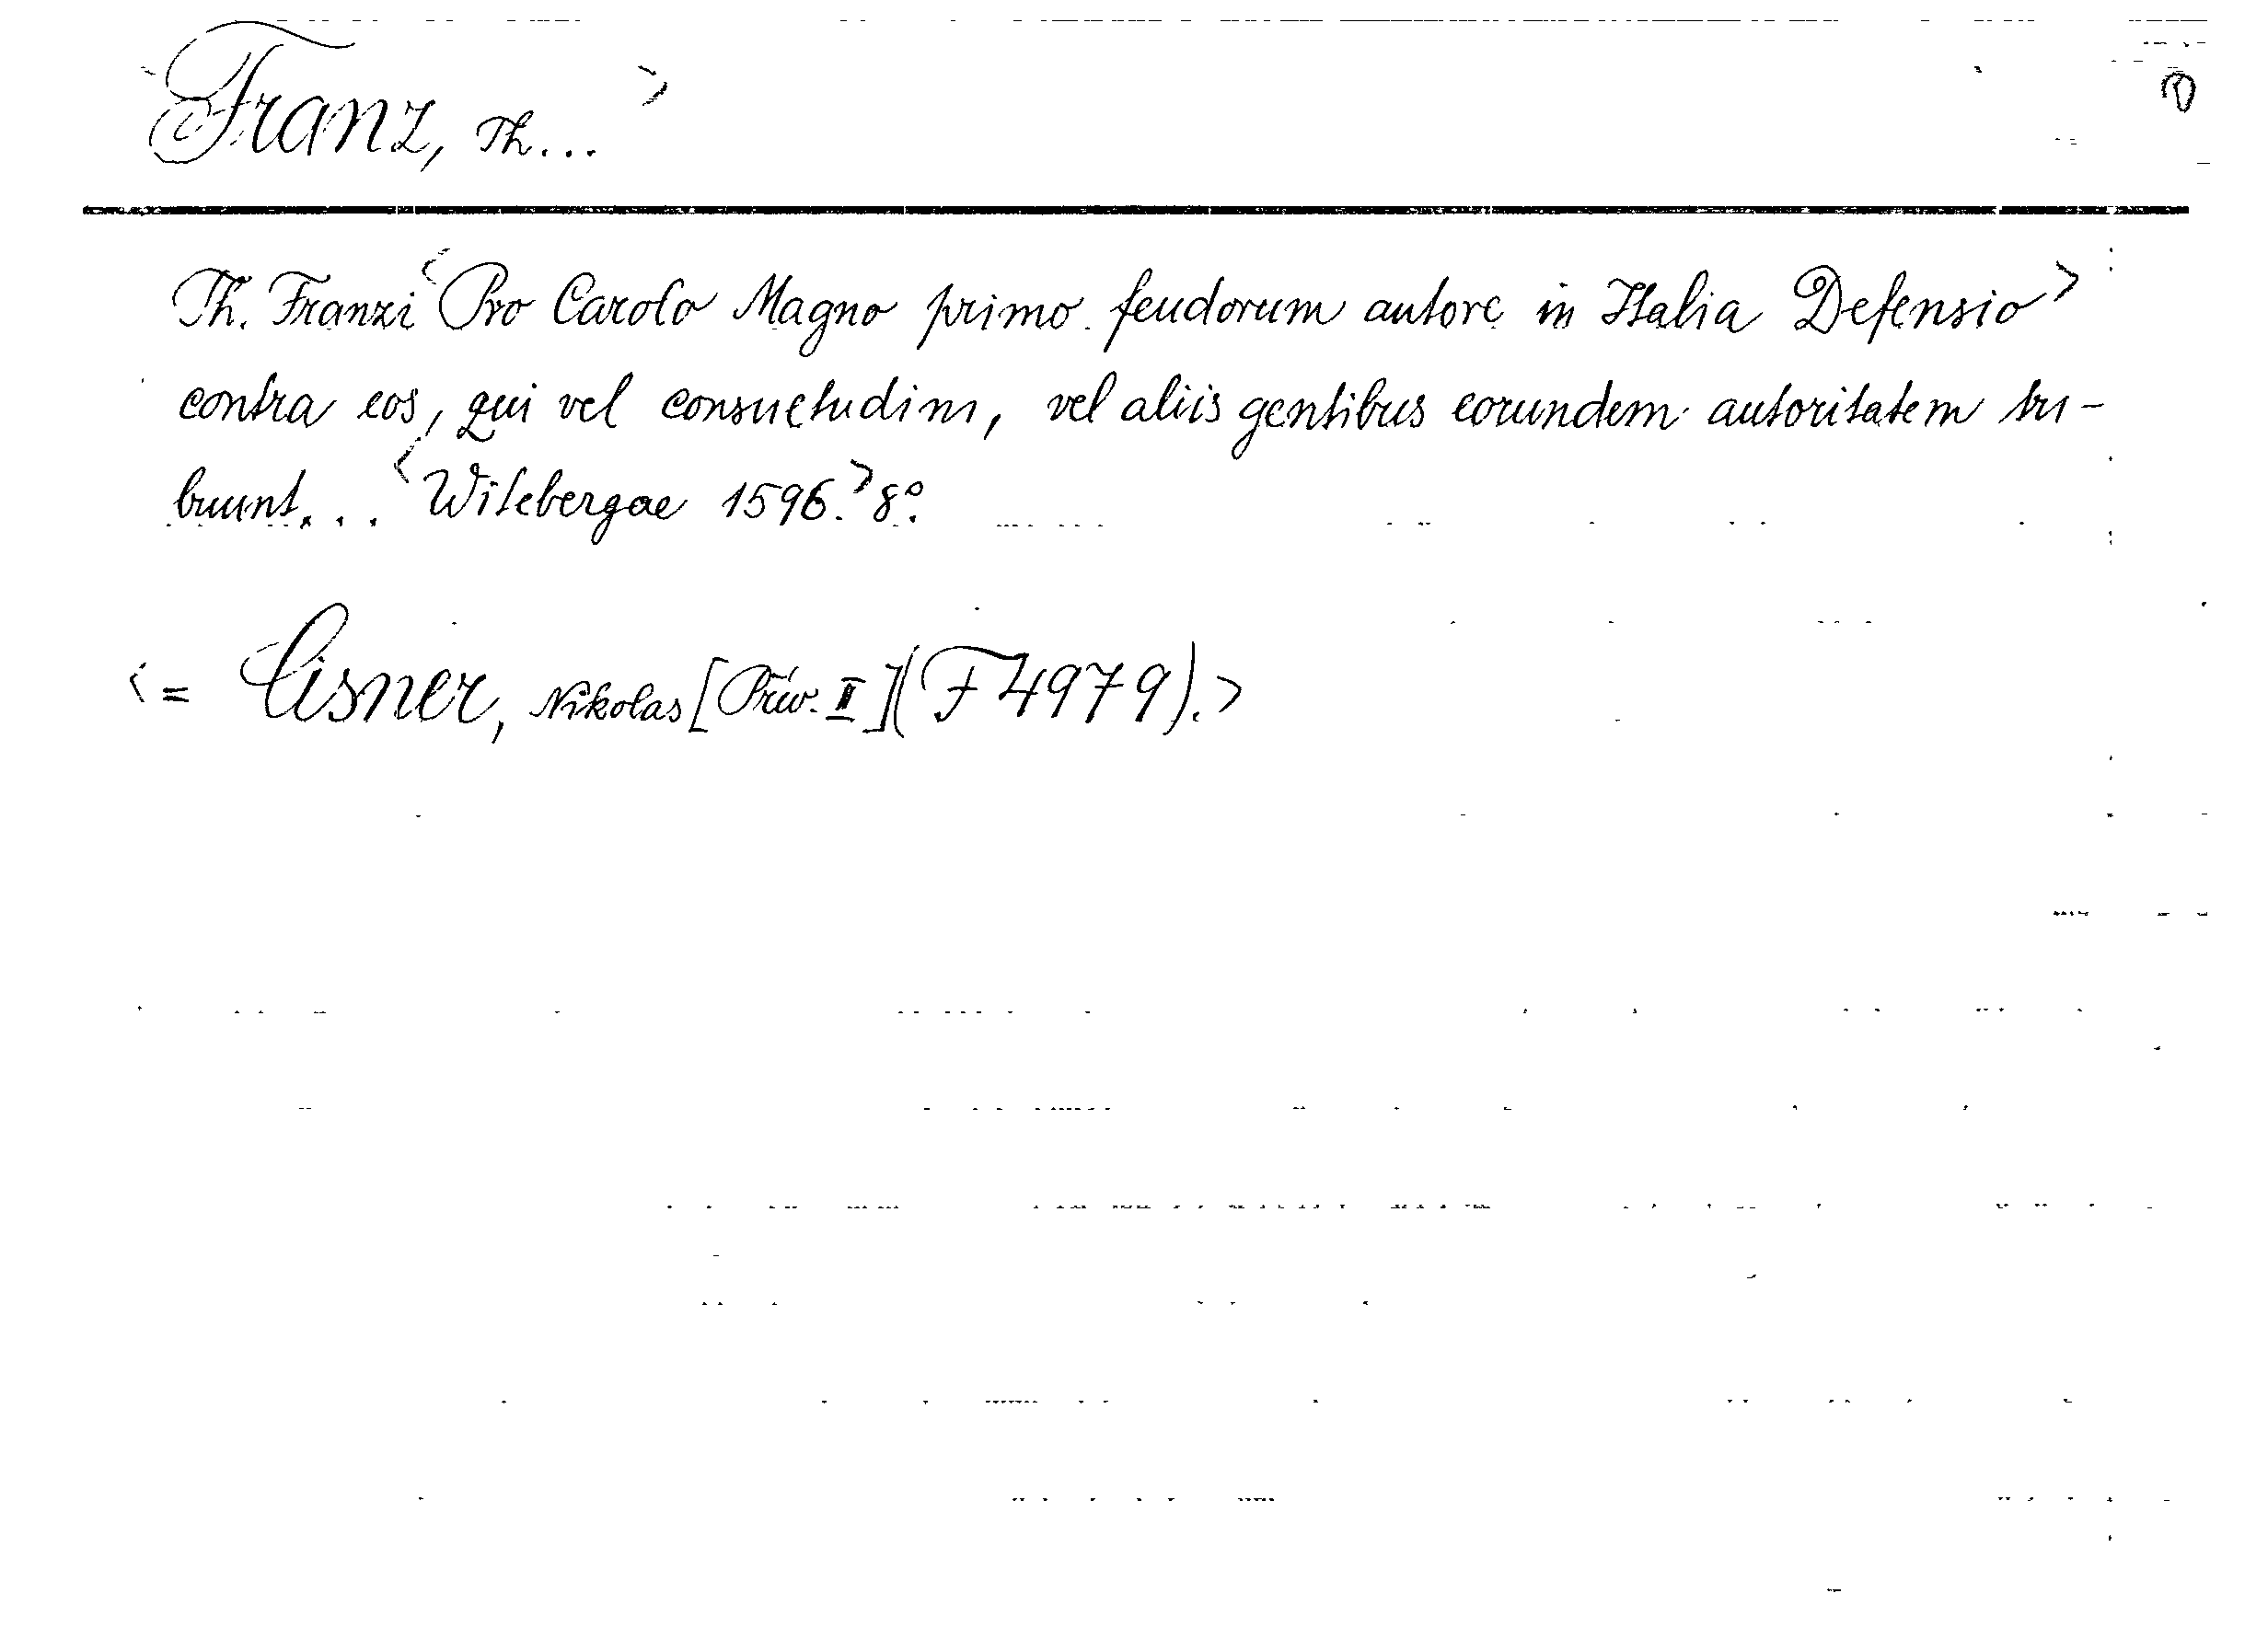 <Franz, Th...>
Th. Franzi <Pro Carolo Magno primo feudorum autore in Italia Defensio>
contra eos, qui vel consuetudini, vel aliis gentibus eorundem autoritatem tri-
buunt... <Witebergae 1596.> 8°.
<= Cisner, Nikolas [Priv. II] (F 4979).>